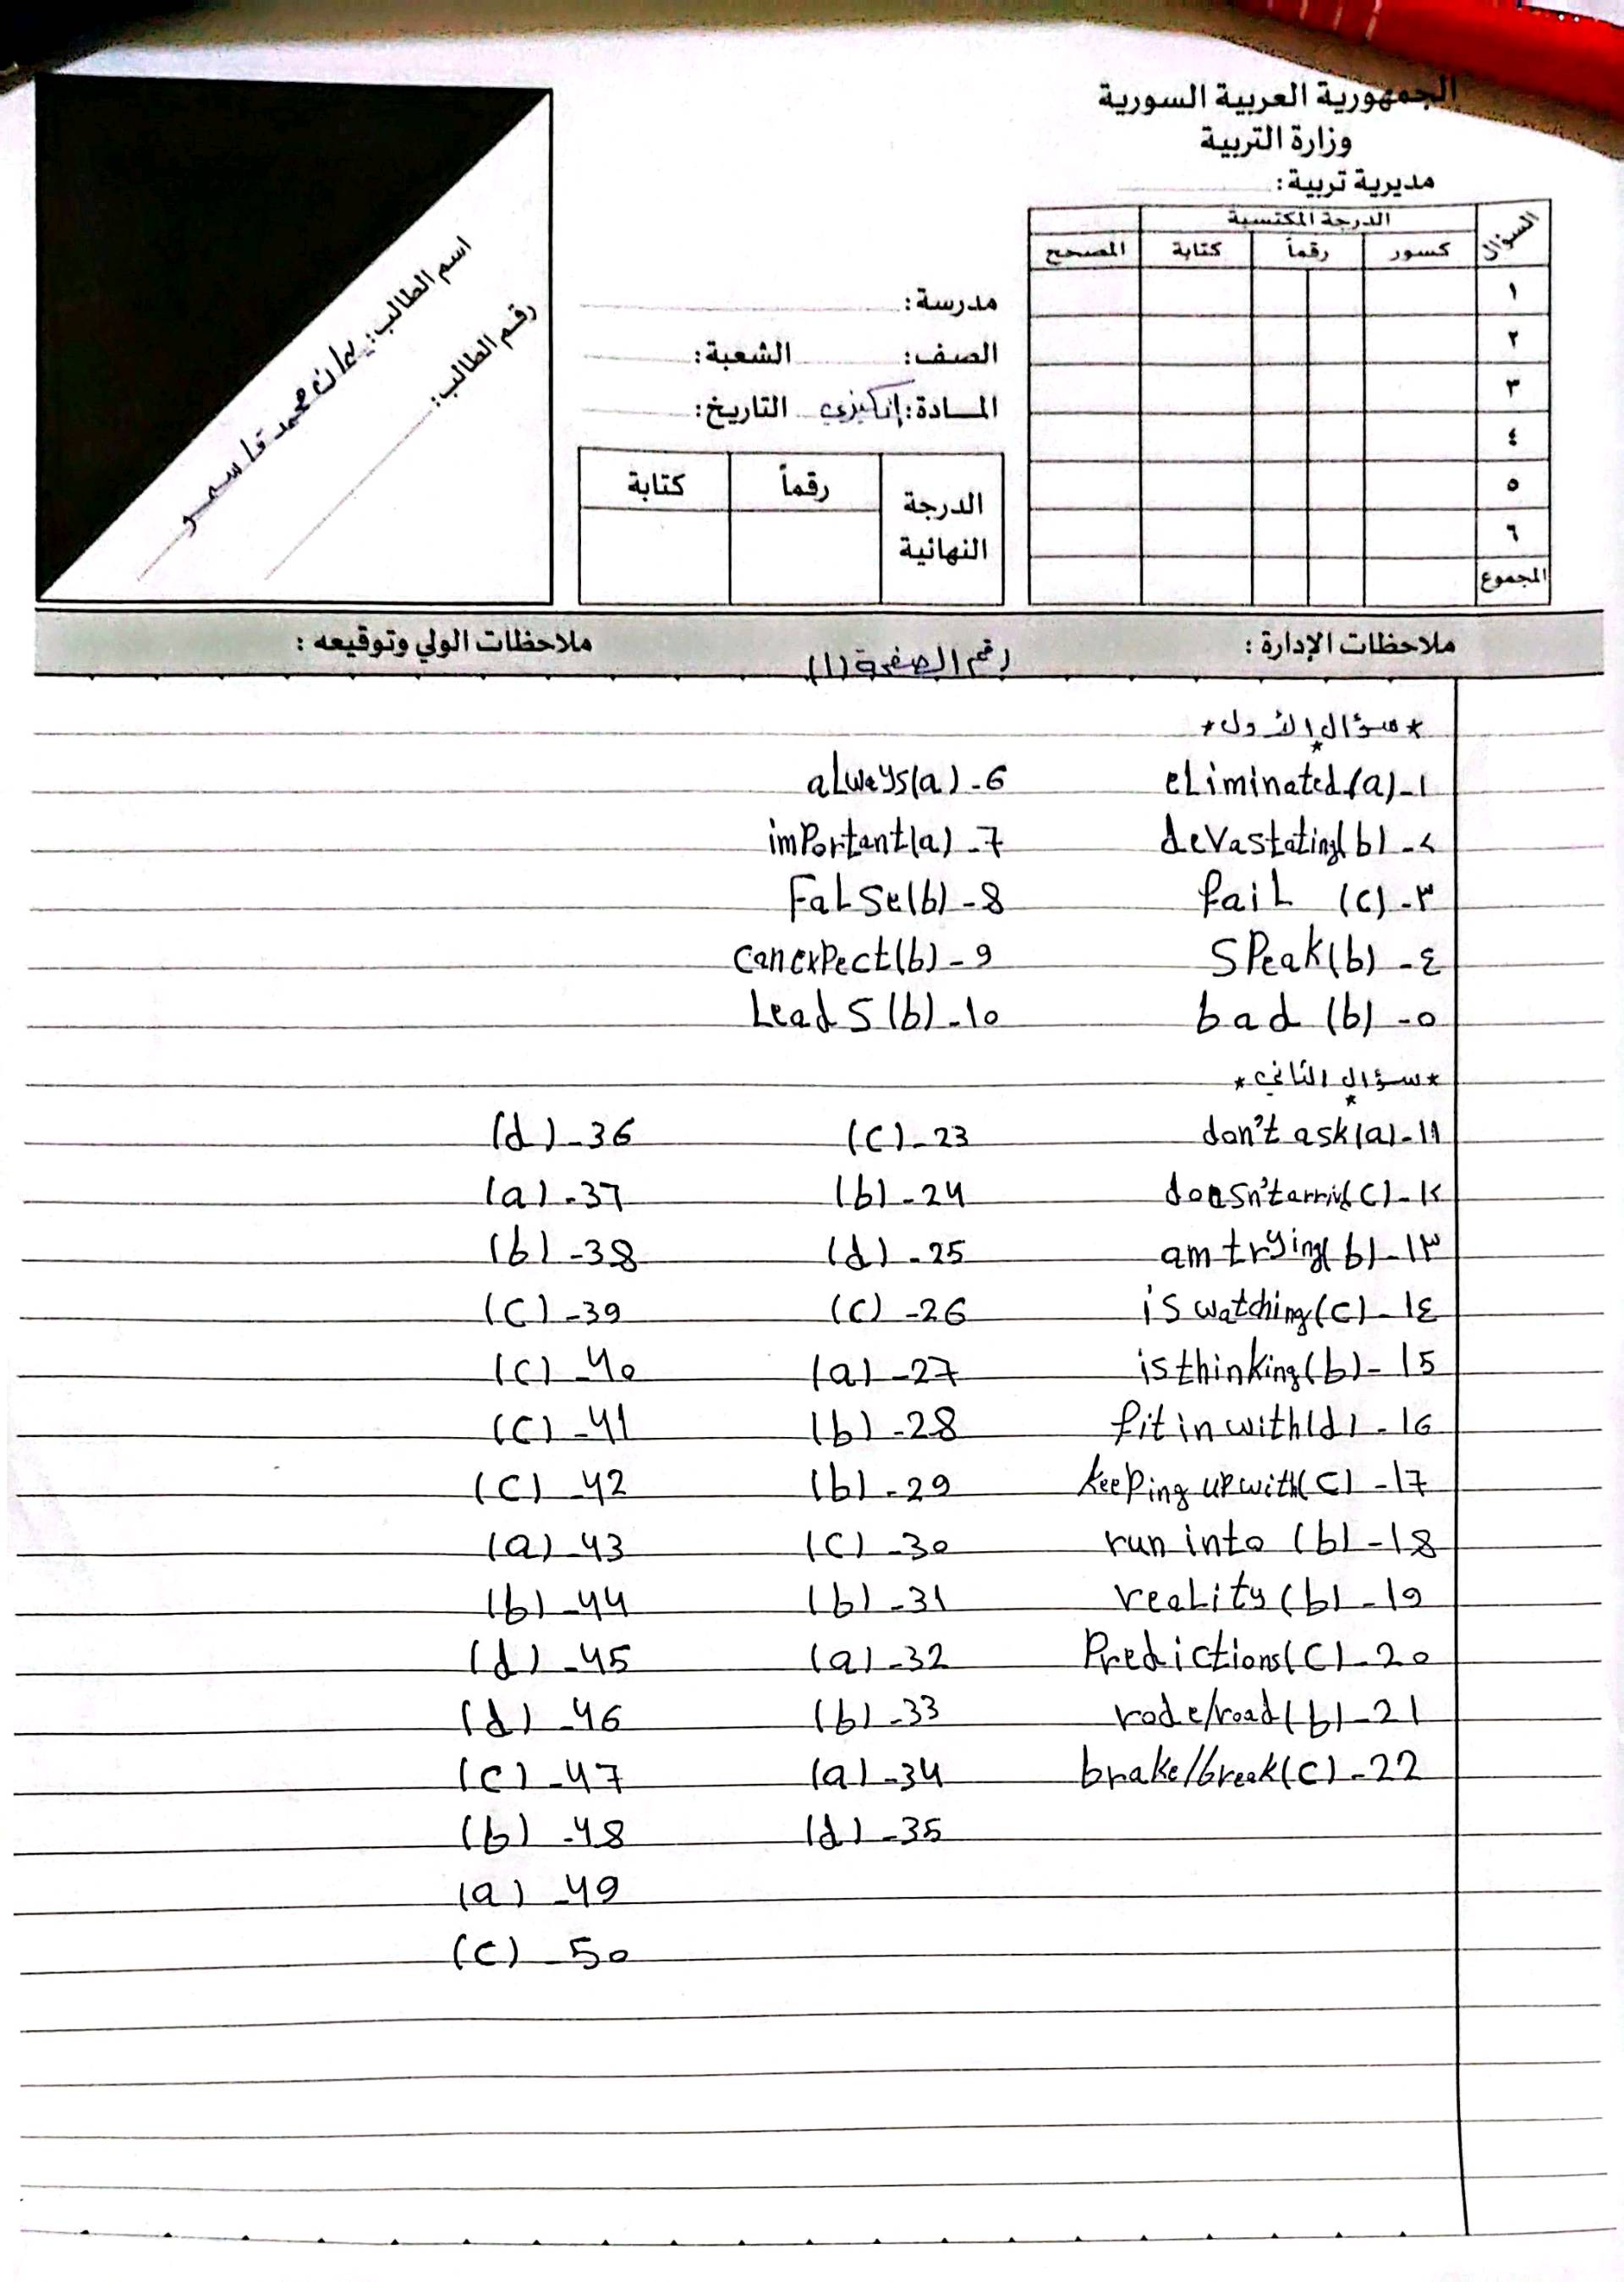 الجمهورية العربية السورية
وزارة التربية
مديرية تربية:
السؤال الدرجة المكتسبة المصحح
كسور رقماً كتابة
١
٢
٣
٤
٥
٦
المجموع
مدرسة:
الصف: الشعبة:
المادة: إنكليزي التاريخ:
الدرجة النهائية رقماً كتابة
اسم الطالب: محمد
رقم الطالب:
ملاحظات الإدارة: رقم الصفحة (1) ملاحظات الولي وتوقيعه:
*سؤال الأول*
eliminated (a) - ١ always (a) - 6
devastating (b) - ٢ important (a) - 7
fail (c) - ٣ False (b) - 8
speak (b) - ٤ can expect (b) - 9
bad (b) - ٥ Leads (b) - 10
*سؤال الثاني*
don't ask (a) - 11 (c) - 23 (d) - 36
doesn't arrive (c) - ١٢ (b) - 24 (a) - 37
am trying (b) - ١٣ (d) - 25 (b) - 38
is watching (c) - ١٤ (c) - 26 (c) - 39
is thinking (b) - 15 (a) - 27 (c) - 40
fit in with (d) - 16 (b) - 28 (c) - 41
keeping up with (c) - 17 (b) - 29 (c) - 42
run into (b) - 18 (c) - 30 (a) - 43
reality (b) - 19 (b) - 31 (b) - 44
Predictions (c) - 20 (a) - 32 (d) - 45
rode/road (b) - 21 (b) - 33 (d) - 46
brake/break (c) - 22 (a) - 34 (c) - 47
(d) - 35 (b) - 48
(a) - 49
(c) - 50